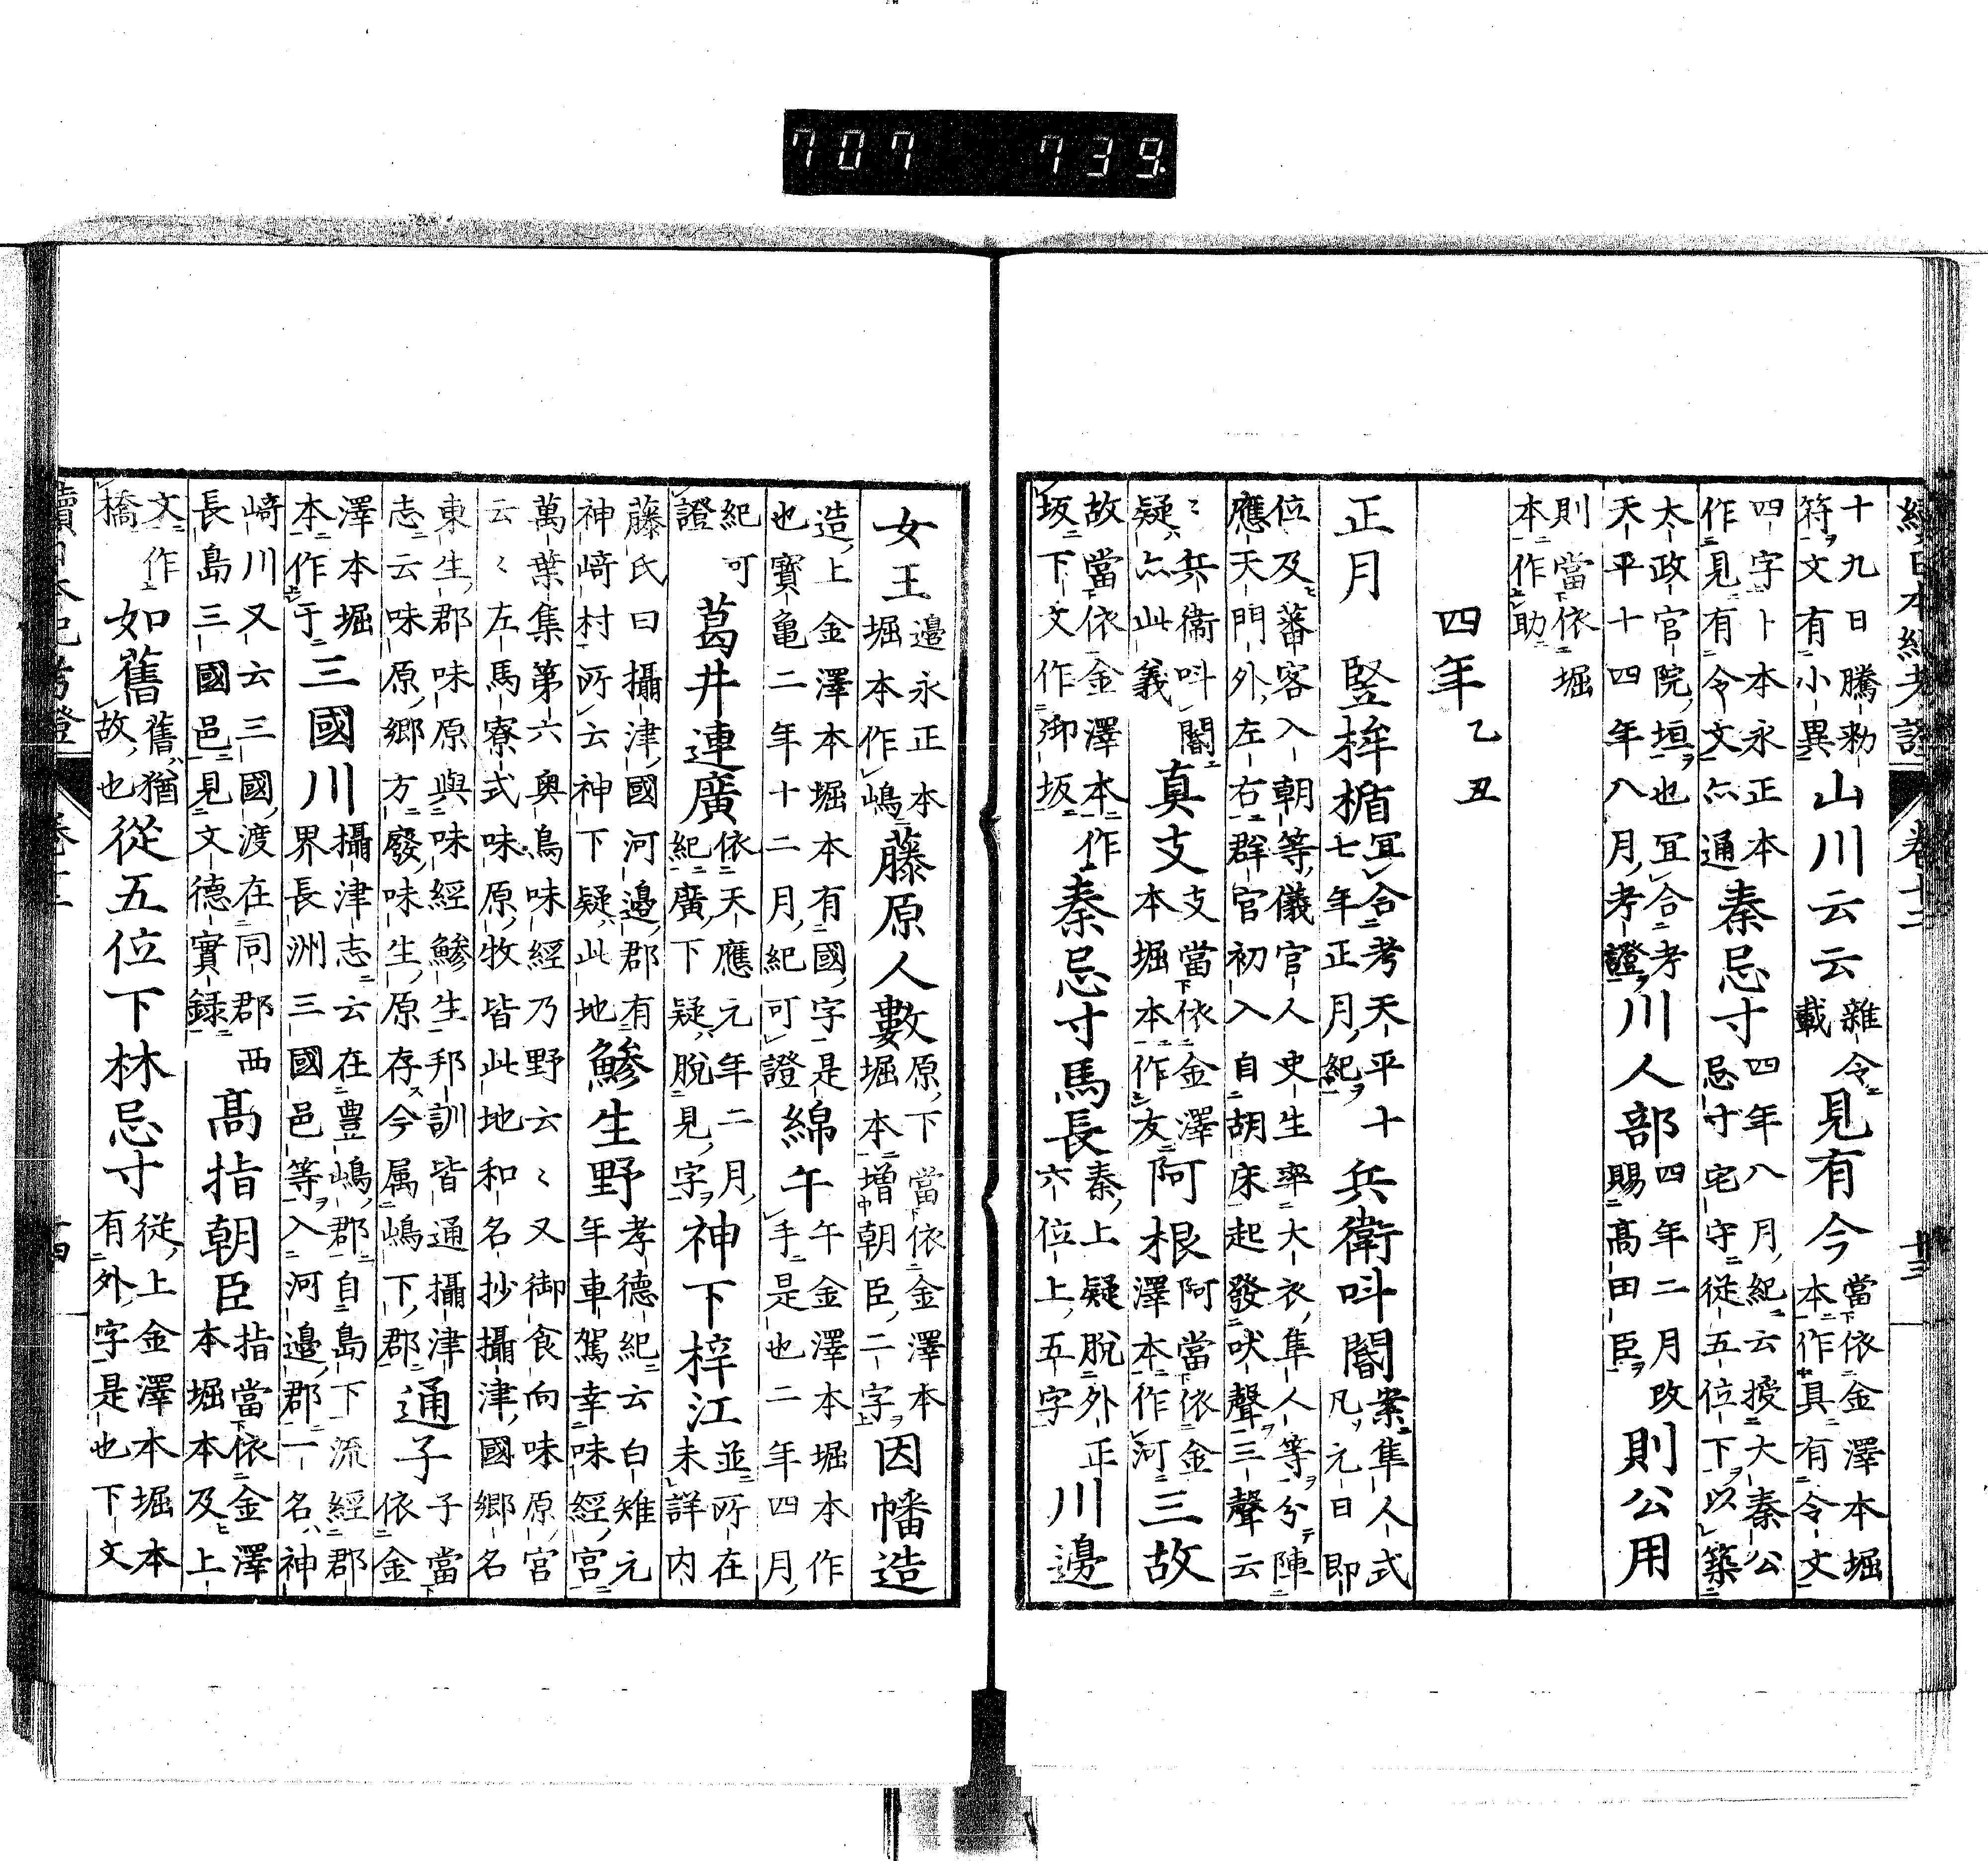 707 739
十九日騰勅
符文有小異 山川云云 雜令
載 見有今 當依金澤本堀
本作具有令文
四字卜本永正本
作見有令文亦通 秦忌寸 四年八月紀云授大秦公
忌寸宅守從五位下以築
太政官院垣也冝合考
天平十四年八月考證 川人部 四年二月改
賜髙田臣 則公用
則當依堀
本作助
四年 乙丑
正月 竪桙楯 冝合考天平十
七年正月紀 兵衛呌閽 案隼人式
凡元日即
位及蕃客入朝等儀官人史生率大衣隼人等分陣
應天門外左右群官初入自胡床起發吠聲三聲云
〻兵衞呌閽
疑亦此義 真支 支當依金澤
本堀本作友 阿根 阿當依金
澤本作河 三故
故當依金澤本作
坂下文作御坂 秦忌寸馬長 秦上疑脫外正
六位上五字 川邊
女王 邊永正本
堀本作嶋 藤原人數 原下當依金澤本
堀本增朝臣二字 因幡造
造上金澤本堀本有國字是
也寳亀二年十二月紀可證 綿午 午金澤本堀本作
手是也二年四月
紀可
證 葛井連廣 依天應元年二月
紀廣下疑脫見字 神下梓江 並所在
未詳内
藤氏曰攝津國河邊郡有
神﨑村所云神下疑此地 鰺生野 孝德紀云白雉元
年車駕幸味經宮
萬葉集第六奥鳥味經乃野云〻又御食向味原宮
云〻左馬寮式味原牧皆此地和名抄攝津國鄉名
東生郡味原與味經鰺生邦訓皆通攝津
志云味原鄉方廢味生原存今属嶋下郡 通子 子當
依金
澤本堀
本作于 三國川 攝津志云在豊嶋郡自島下流經郡
界長洲三國邑等入河邊郡一名神
﨑川又云三國渡在同郡西
長島三國邑見文德實録 髙指朝臣 指當依金澤
本堀本及上
文作
橋 如舊 舊猶
故也 從五位下林忌寸 從上金澤本堀本
有外字是也下文